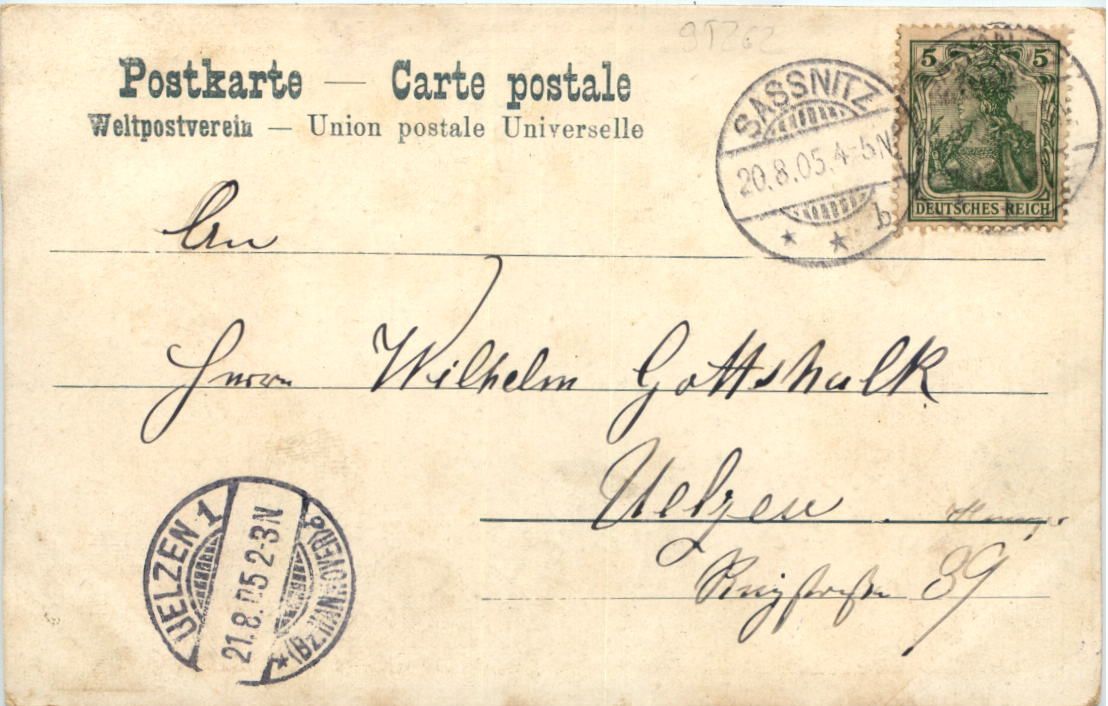 95262
Postkarte — Carte postale
Weltpostverein — Union postale Universelle
SASSNITZ
20.8.05.4-5N
* * b
5 5
DEUTSCHES REICH
An
Herrn Wilhelm Gottshalk
Uelzen
Ringstraße 39
UELZEN 1
21.8.05 2-3N
*(Bz. HANNOVER)